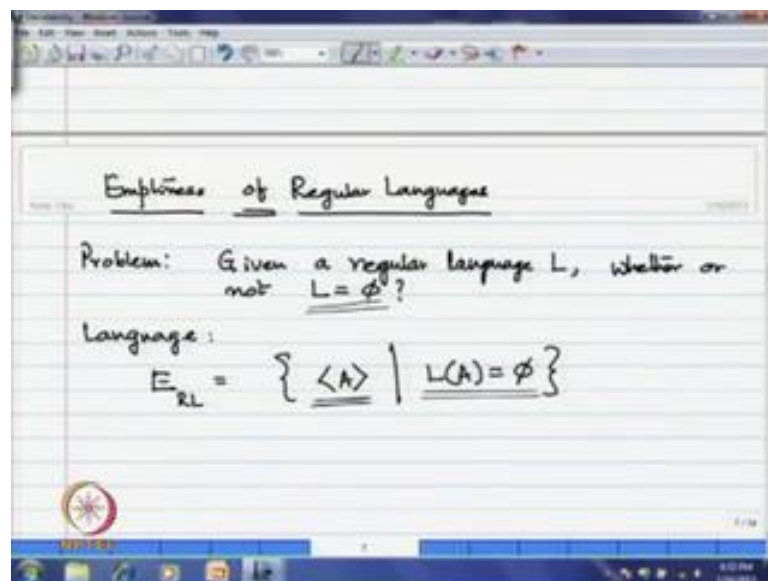 Emptiness of Regular Languages
Problem: Given a regular language L, whether or
not L = ϕ ?
Language :
E_RL = { <A> | L(A) = ϕ }
NPTEL